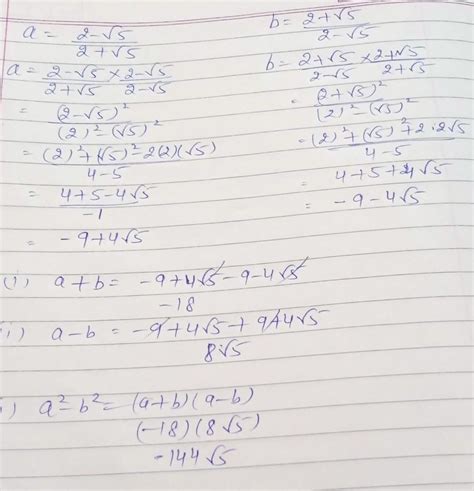 a = 2-√5 / 2+√5
a = 2-√5 / 2+√5 × 2-√5 / 2-√5
= (2-√5)² / (2)²-(√5)²
= (2)²+(√5)²-2(2)(√5) / 4-5
= 4+5-4√5 / -1
= -9+4√5
b = 2+√5 / 2-√5
b = 2+√5 / 2-√5 × 2+√5 / 2+√5
= (2+√5)² / (2)²-(√5)²
= (2)²+(√5)²+2·2√5 / 4-5
= 4+5+4√5
= -9-4√5
(i) a+b = -9+4√5-9-4√5
-18
i) a-b = -9+4√5+9+4√5
8√5
i) a²-b² = (a+b)(a-b)
(-18)(8√5)
-144√5